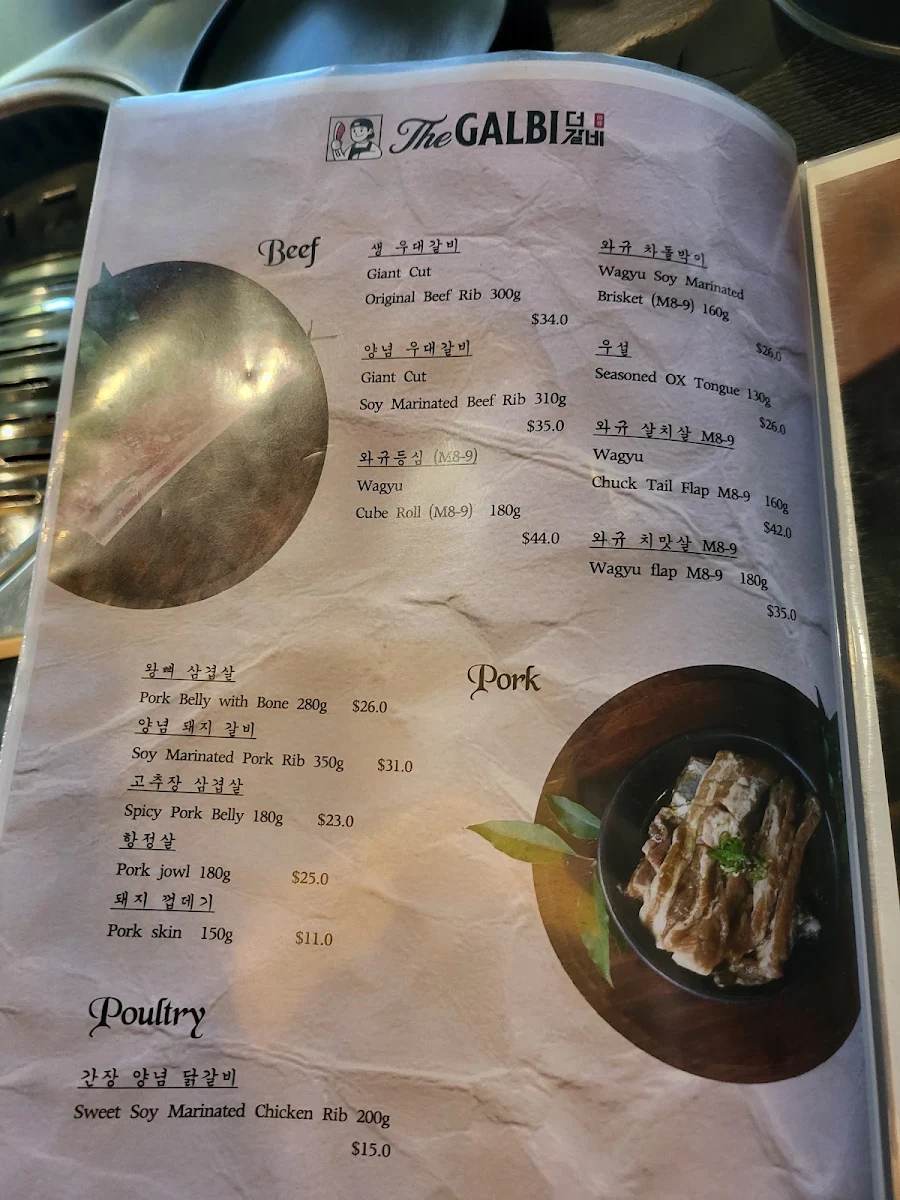 The GALBI 더갈비
Beef
생 우대갈비
Giant Cut
Original Beef Rib 300g
$34.0
양념 우대갈비
Giant Cut
Soy Marinated Beef Rib 310g
$35.0
와규등심 (M8-9)
Wagyu
Cube Roll (M8-9) 180g
$44.0
와규 차돌박이
Wagyu Soy Marinated
Brisket (M8-9) 160g
$26.0
우설
Seasoned OX Tongue 130g
$26.0
와규 살치살 M8-9
Wagyu
Chuck Tail Flap M8-9 160g
$42.0
와규 치맛살 M8-9
Wagyu flap M8-9 180g
$35.0
Pork
왕뼈 삼겹살
Pork Belly with Bone 280g $26.0
양념 돼지 갈비
Soy Marinated Pork Rib 350g $31.0
고추장 삼겹살
Spicy Pork Belly 180g $23.0
항정살
Pork jowl 180g $25.0
돼지 껍데기
Pork skin 150g $11.0
Poultry
간장 양념 닭갈비
Sweet Soy Marinated Chicken Rib 200g
$15.0